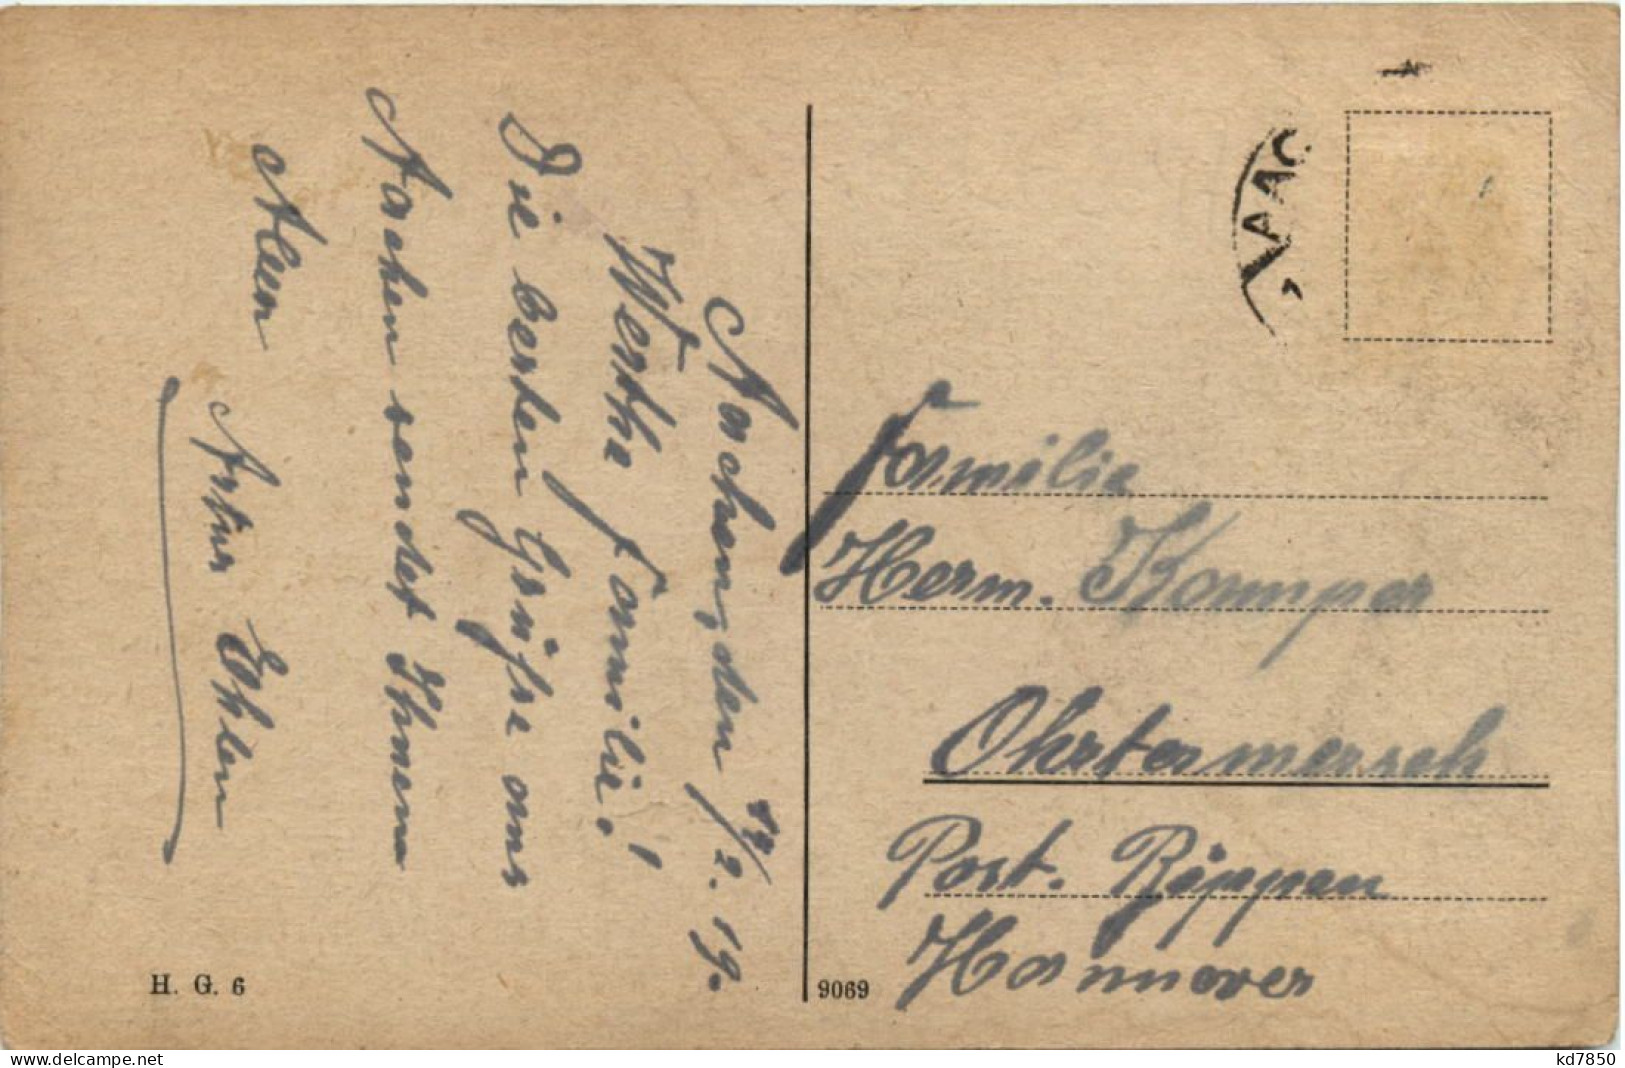 Aachen, den 14/2. 19.
Werthe Familie!
Die besten Grüße aus
Aachen sendet Ihnen
Allen
Artur Ehlen
H. G. 6
9069
AAC
Familie
Herm. Kamper
Ohrtermersch
Post. Bippen
Hannover
delcampe.net
kd7850